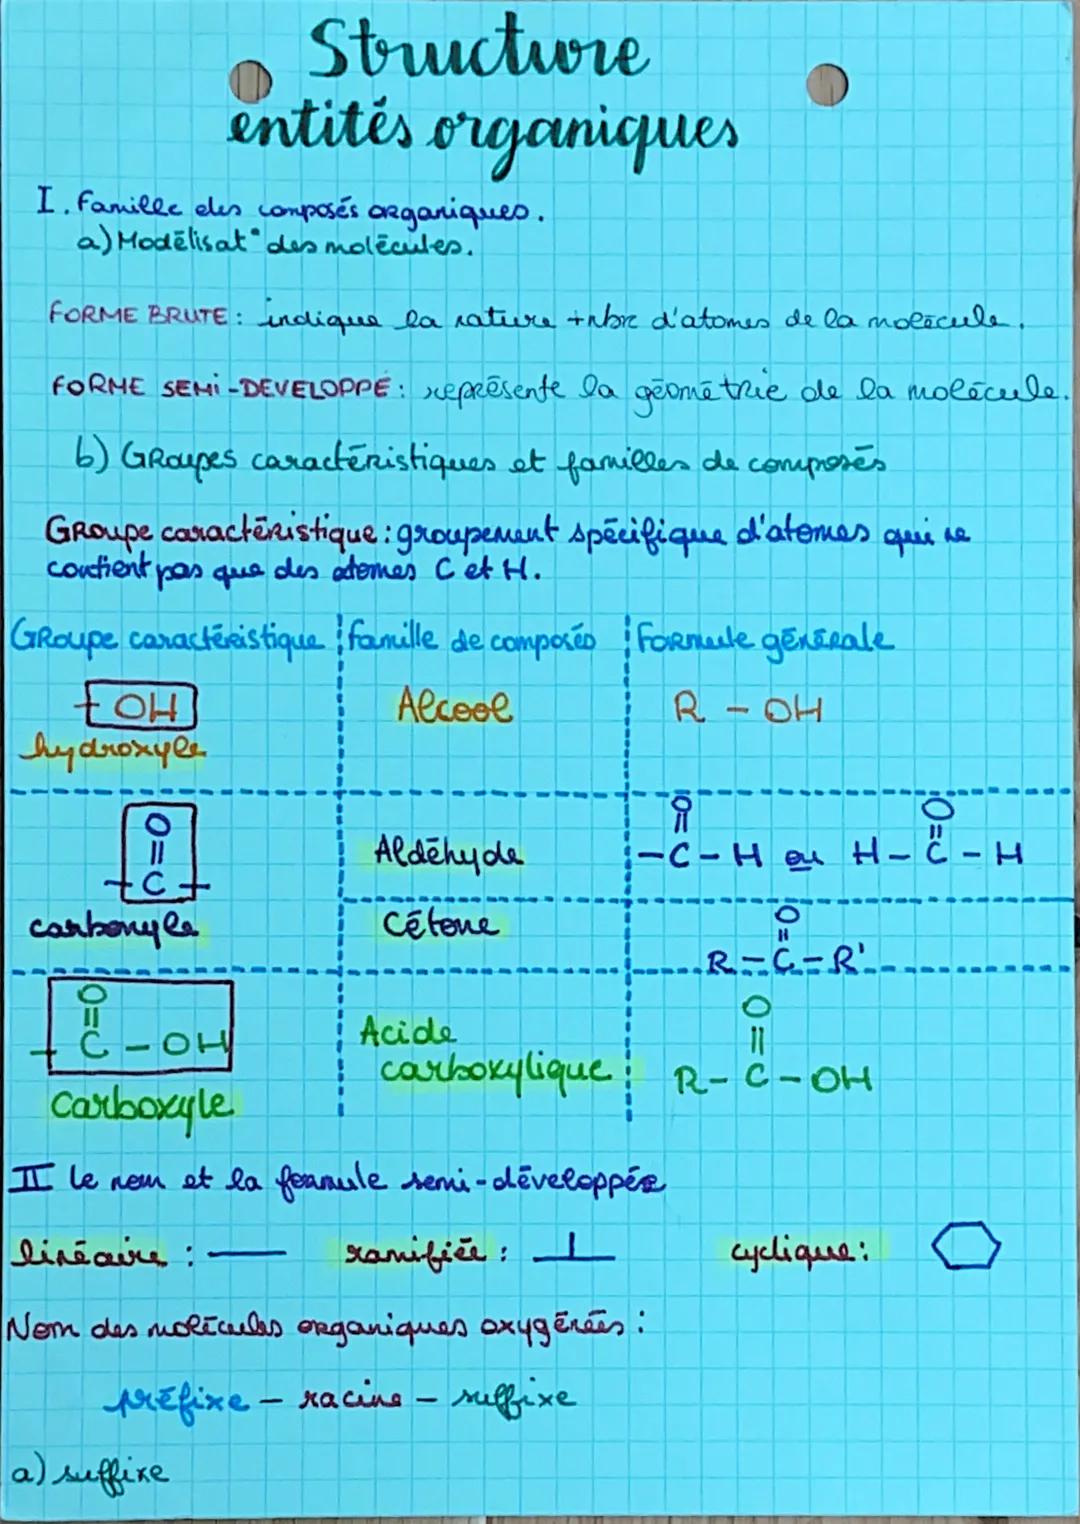 Structure
entités organiques
I. Famille des composés organiques.
a) Modélisat° des molécules.
FORME BRUTE : indique la nature + nbr d'atomes de la molécule.
FORME SEMI-DEVELOPPÉ : représente la géométrie de la molécule.
b) Groupes caractéristiques et familles de composés
Groupe caractéristique : groupement spécifique d'atomes qui ne
contient pas que des atomes C et H.
Groupe caractéristique famille de composés Formule générale
- OH Alcool R - OH
hydroxyle
O O O
|| || ||
- C - Aldéhyde - C - H ou H - C - H
carbonyle Cétone
O
||
R - C - R'
O O
|| ||
- C - OH Acide carboxylique R - C - OH
carboxyle
II le nom et la formule semi-développée
linéaire : ramifiée : cyclique :
Nom des molécules organiques oxygénées :
préfixe - racine - suffixe
a) suffixe